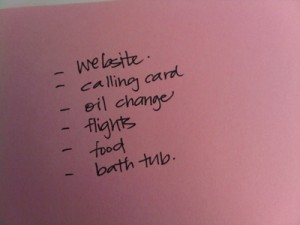 - website.
- calling card
- oil change
- flights
- food
- bath tub.